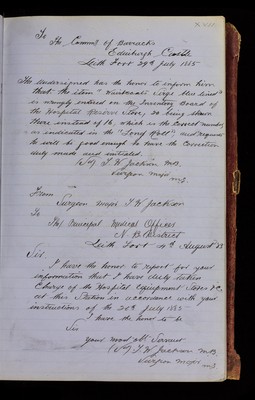 To
The Commt of Barracks
Edinburgh Castle
Leith Fort 29th July 1885
The undersigned has the honor to inform him
that the item " Waistcoats Serge Blue Lined"
is wrongly entered on the Inventory Board of
the Hospital Reserve Store, as being
there instead of 16, which is the correct number
as indicated in the "Long Roll", and requests
he will be good enough to have the correction
duly made and initialed
(Sd) T. W. Jackson M.B.
Surgeon Major
M.S.
From
Surgeon Major T. W. Jackson
To
The Principal Medical Officer
N. B. District
Leith Fort 4th August 85
Sir,
I have the honor to report for your
information that I have duly taken
Charge of the Hospital Equipment Stores &c.
at this Station in accordance with your
instructions of the 20th July 1885
I have the honor to be
Sir
your most obt Servant
(Sd) T. W. Jackson M.B.
Surgeon Major
M.S.